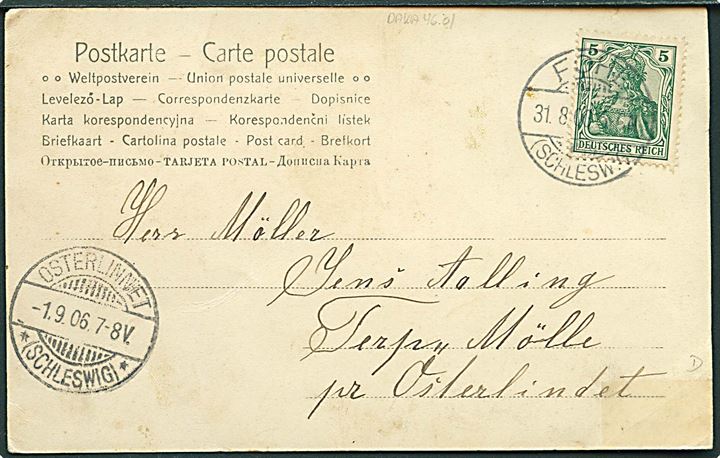 DAKA 46.01
Postkarte – Carte postale
Weltpostverein – Union postale universelle
Levelező-Lap – Correspondenzkarte – Dopisnice
Karta korespondencyjna – Korespondenční lístek
Briefkaart – Cartolina postale – Post card – Brefkort
Открытое-письмо – TARJETA POSTAL – Дописна Карта
5 5
DEUTSCHES REICH
31.8.
(SCHLESW.
Herr Möller
Jens Aalling
Terp„ Mölle
pr Österlindet
OSTERLINNET
-1.9.06.7-8V.
*(SCHLESWIG)*
D